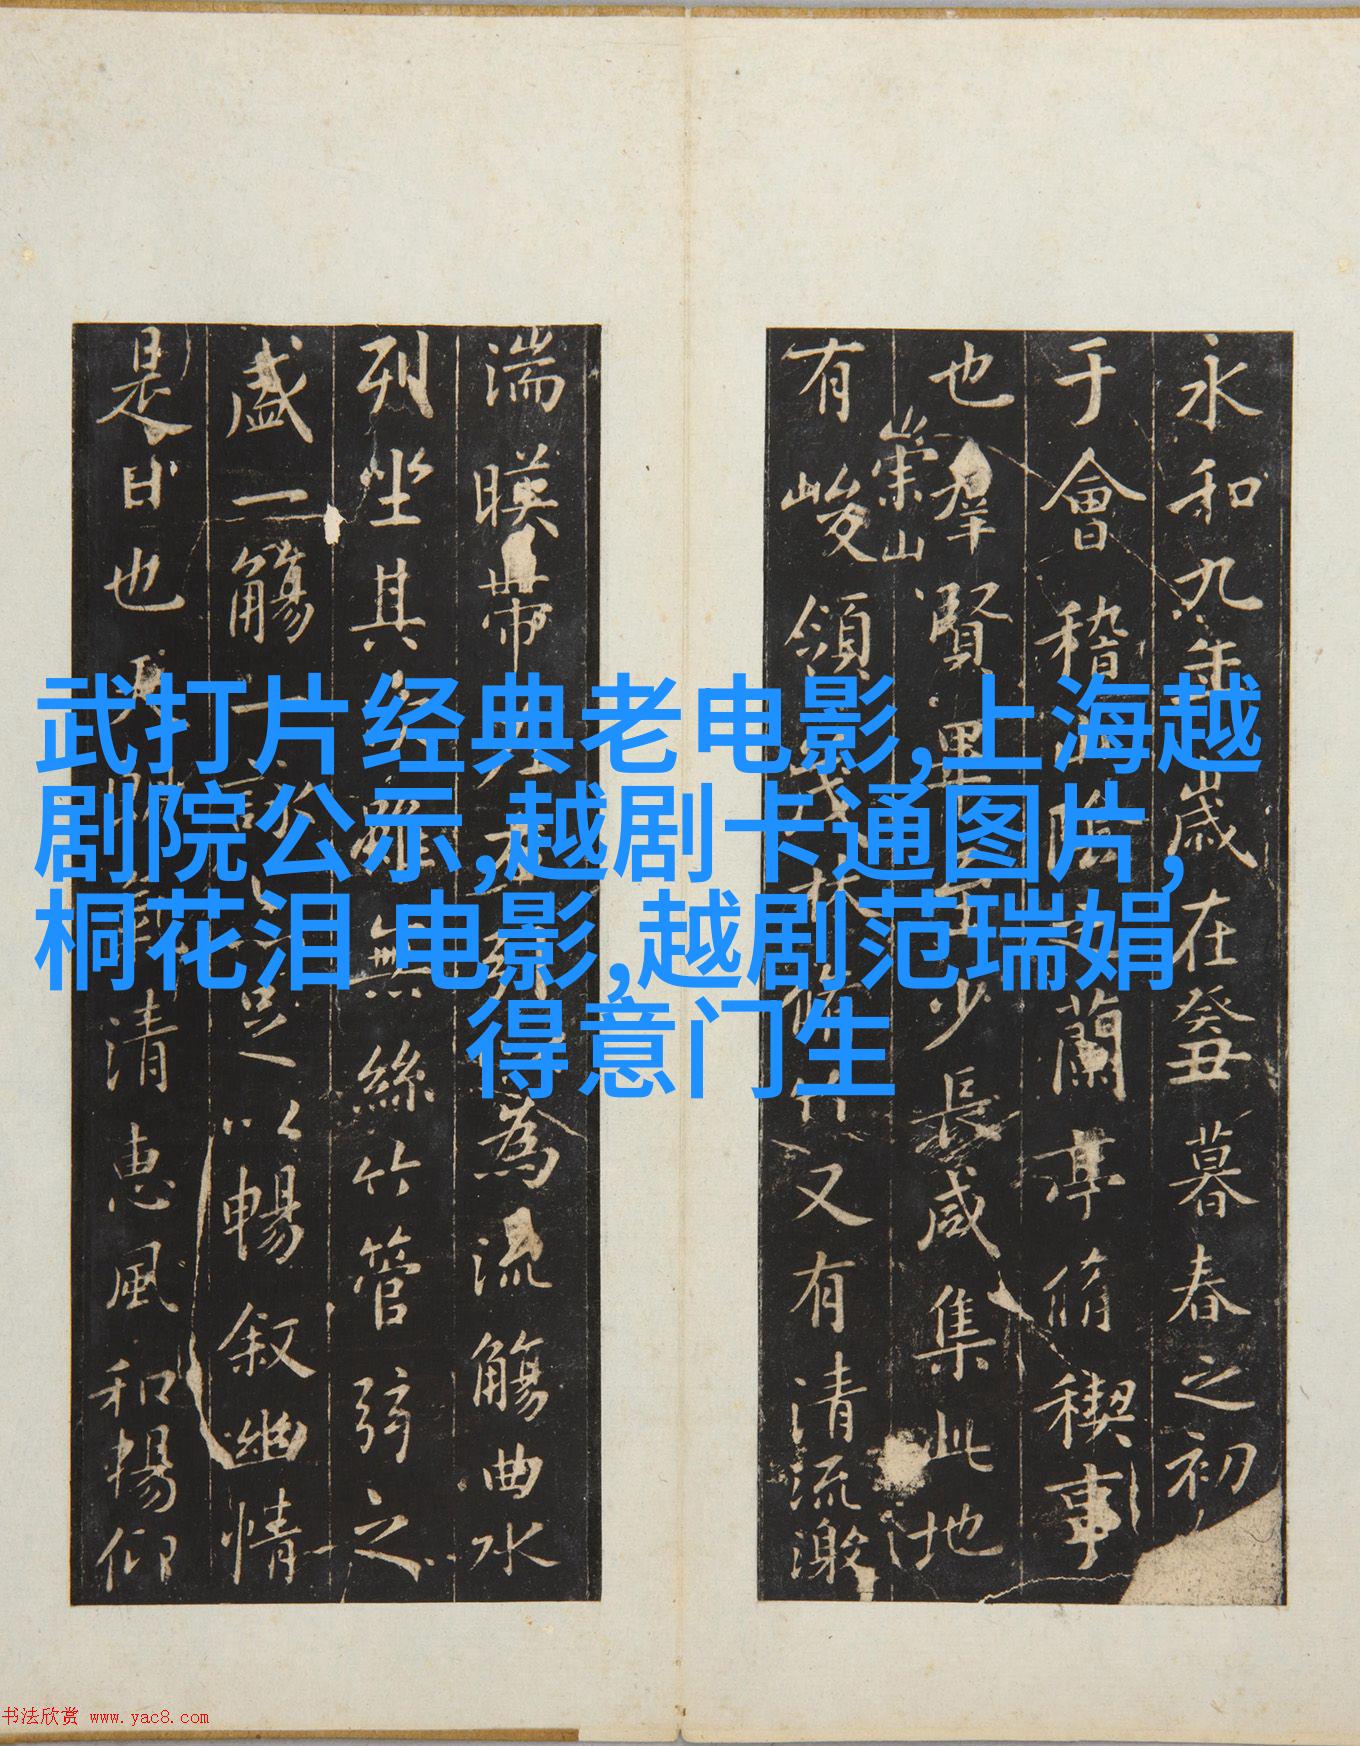 武打片经典老电影,上海越
剧院公示,越剧卡通图片,
桐花泪 电影,越剧范瑞娟
得意门生
永和九年歲在癸丑暮春之初
于會稽山陰蘭亭脩稧事
也羣賢畢至少長咸集此地
崇山
有峻領茂林脩竹又有清流激
湍暎帶左右為流觴曲水
列坐其次雖無絲竹管弦之
盛一觴一詠足以暢敘幽情
是日也天朗氣清惠風和暢仰
书法欣赏 www.yac8.com